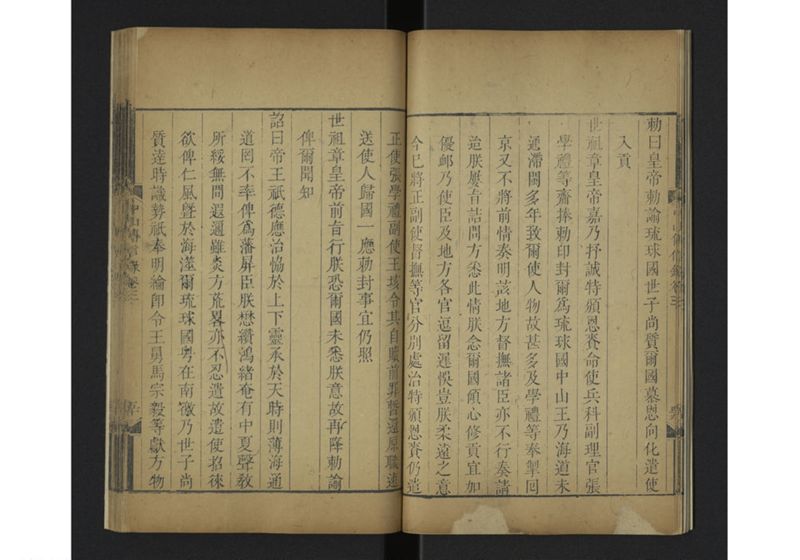 勅曰皇帝勅諭琉球國世子尚質爾國慕恩向化遣使
入貢
世祖章皇帝嘉乃抒誠特頒恩賚命使兵科副理官張
學禮等齎捧勅印封爾爲琉球國中山王乃海道未
通滯閩多年致爾使人物故甚多及學禮等奉掣回
京又不將前情奏明該地方督撫諸臣亦不行奏請
迨朕屢旨詰問方悉此情朕念爾國傾心修貢宜加
優䘏乃使臣及地方各官逗留遲悞豈朕柔遠之意
今已將正副使督撫等官分別處治特頒恩賚仍遣
正使張學禮副使王垓令其自贖前罪暫還原職速
送使人歸國一應勅封事宜仍照
世祖章皇帝前旨行朕恐爾國未悉朕意故再降勅諭
俾爾聞知
詔曰帝王祇德應治協於上下靈承於天時則薄海通
道罔不率俾爲藩屏臣朕懋纘鴻緒奄有中夏聲教
所綏無間遐邇雖炎方荒畧亦不忍遺故遣使招徠
欲俾仁風曁於海澨爾琉球國粤在南徼乃世子尚
質達時識勢祇奉明綸卽令王舅馬宗毅等獻方物
中山傳信錄卷三